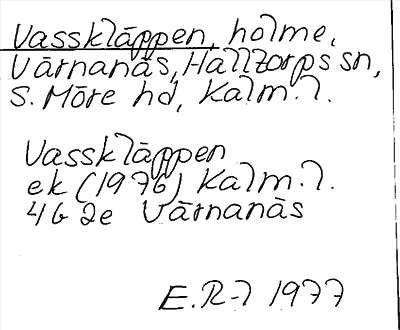 Vassklåppen, holme,
Värnanäs, Hallzorps sn,
S. Möre hd, Kalm. l.
Vassklåppen
ek (1976) Kalm. l.
4G 2e Värnanäs
E. R-l 1977